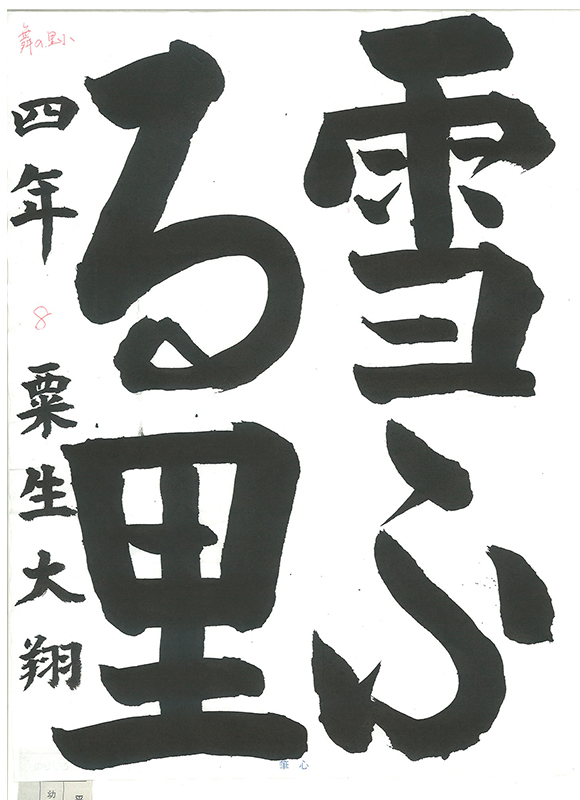 雪ふ
る里
四年 粟生大翔
舞の里小
8
筆心
幼